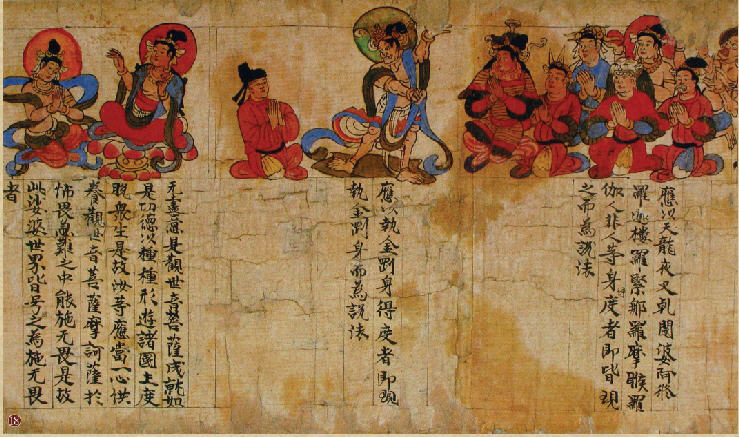 應以天龍夜叉乹闥婆阿脩
羅迦樓羅緊那羅摩睺羅
伽人非人等身得度者即皆現
之而為説法
應以執金剛身得度者即現
執金剛身而為説法
无盡意是觀世音菩薩成就如
是功德以種種形遊諸國土度
脫衆生是故汝等應當一心供
養觀世音菩薩摩訶薩於
怖畏急難之中能施无畏是故
此娑婆世界皆号之為施无畏
者